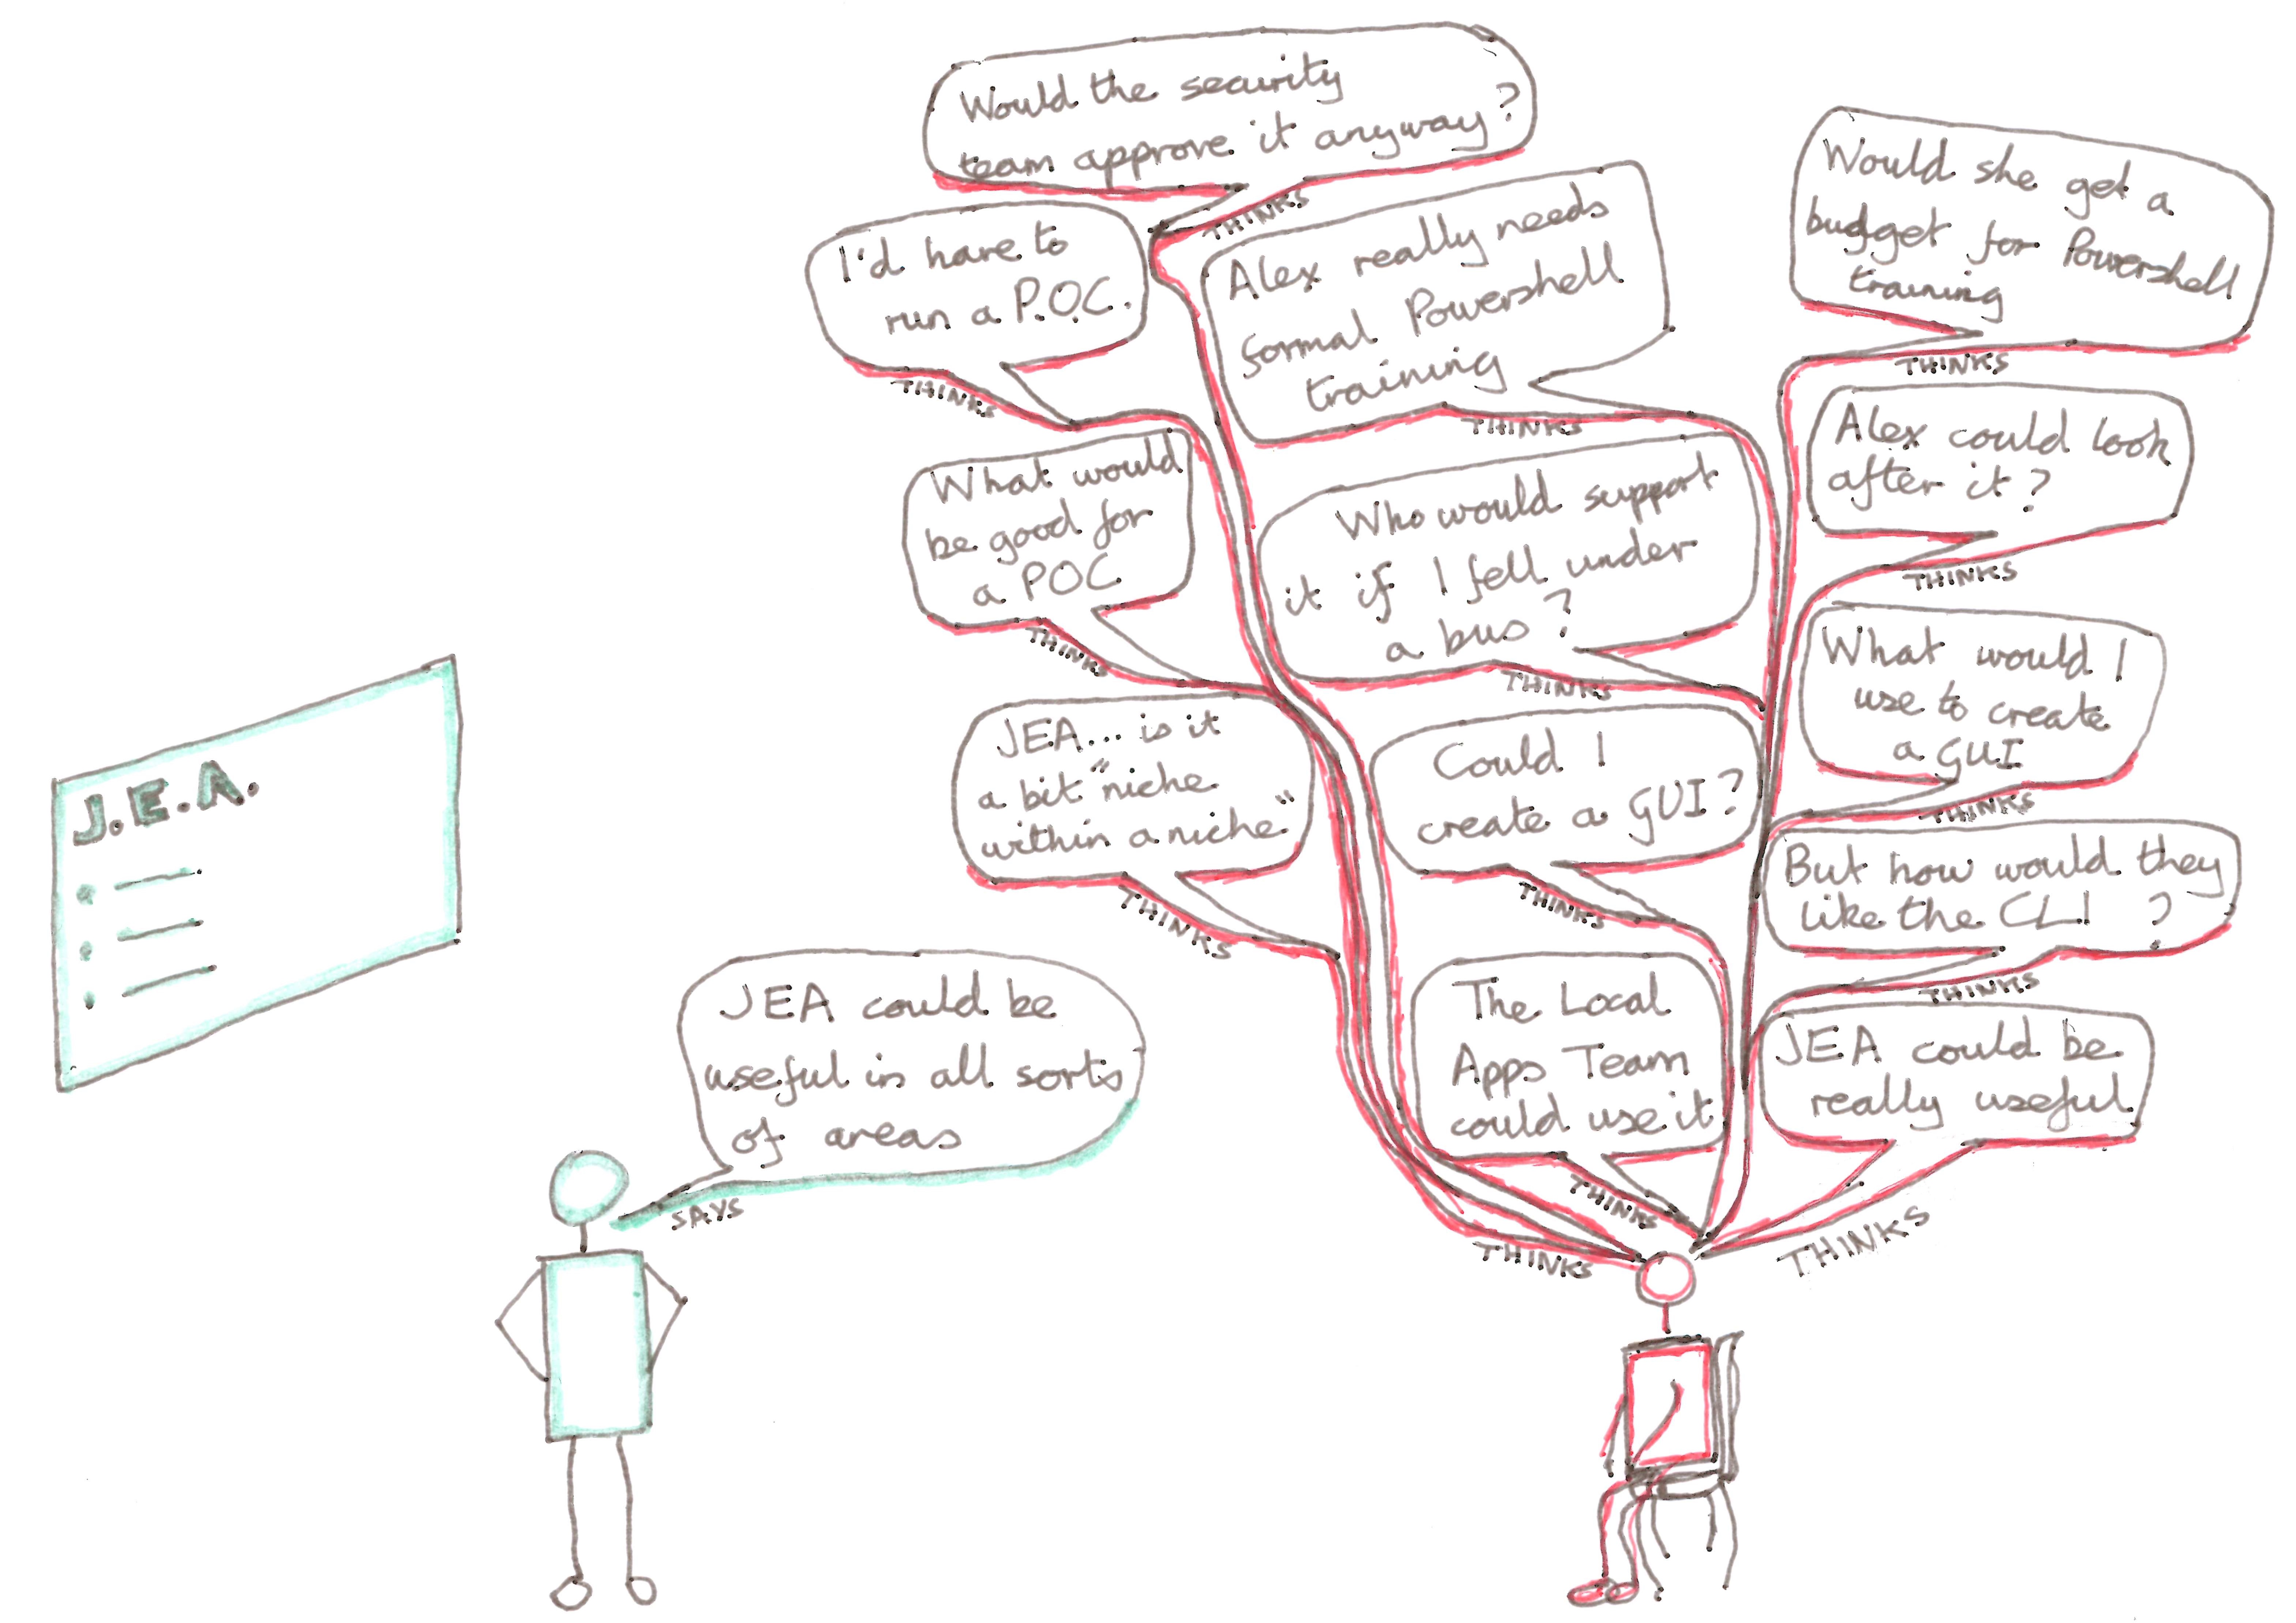 J.E.A.
JEA could be
useful in all sorts
of areas
SAYS
Would the security
team approve it anyway?
THINKS
I'd have to
run a P.O.C.
THINKS
What would
be good for
a POC
THINKS
JEA... is it
a bit "niche
within a niche"
THINKS
THINKS
Alex really needs
formal Powershell
training
THINKS
Who would support
it if I fell under
a bus?
THINKS
Could I
create a GUI?
THINKS
The Local
Apps Team
could use it
THINKS
Would she get a
budget for Powershell
training
THINKS
Alex could look
after it?
THINKS
What would I
use to create
a GUI
THINKS
But how would they
like the CLI ?
THINKS
JEA could be
really useful
THINKS